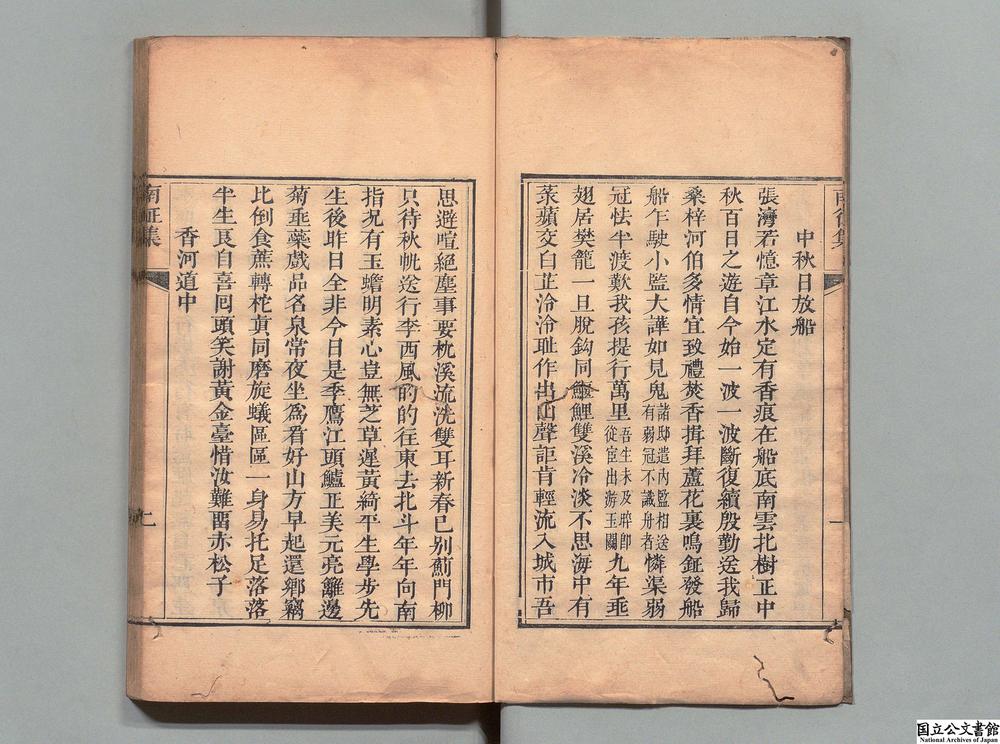 中秋日放船
張灣若憶章江水定有香痕在船底南雲北樹正中
秋百日之遊自今始一波一波斷復續殷勤送我歸
桑梓河伯多情宜致禮焚香揖拜蘆花裏鳴鉦發船
船乍駛小監大譁如見鬼諸邸遣內監相送有弱冠不識舟者憐渠弱
冠怯半渡歎我孩提行萬里吾生未及晬卽從宦出游玉關九年垂
翅居樊籠一旦脫鈎同鱷鯉雙溪冷淡不思海中有
菜蘋交白芷泠泠耻作出山聲詎肯輕流入城市吾
思避喧絕塵事要枕溪流洗雙耳新春已別薊門柳
只待秋帆送行李西風的的往東去北斗年年向南
指況有玉蟾明素心豈無芝草遲黃綺平生學步先
生後昨日全非今日是季鷹江頭鱸正美元亮籬邊
菊垂蘂戲品名泉常夜坐爲看好山方早起還鄉竊
比倒食蔗轉柁眞同磨旋蟻區區一身易托足落落
半生良自喜囘頭笑謝黃金臺惜汝難酉赤松子
香河道中
南征集
七
国立公文書館
National Archives of Japan